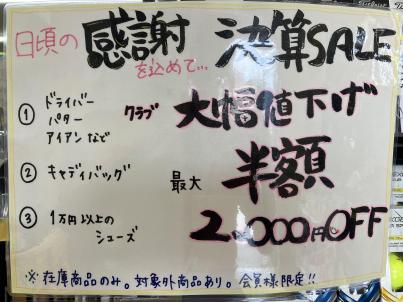 日頃の感謝を込めて… 決算SALE
① ドライバー
パター
アイアンなど
クラブ 大幅値下げ
② キャディバッグ 最大 半額
③ 1万円以上の
シューズ
2.000円OFF
※在庫商品のみ。対象外商品あり。会員様限定!!